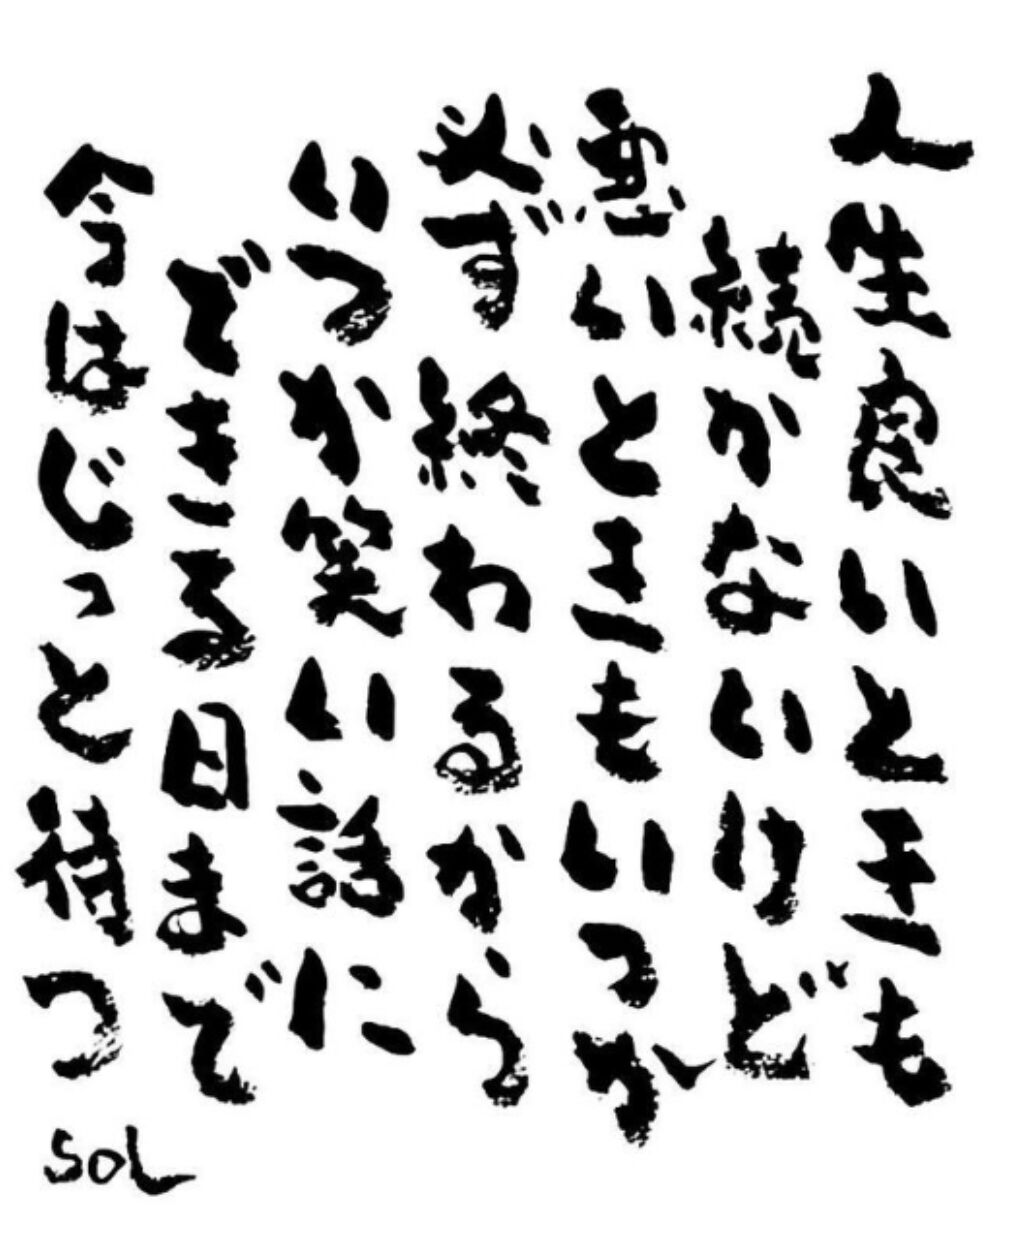 人生良いときも
続かないけど
悪いときもいつか
必ず終わるから
いつか笑い話に
できる日まで
今はじっと待つ
SOL